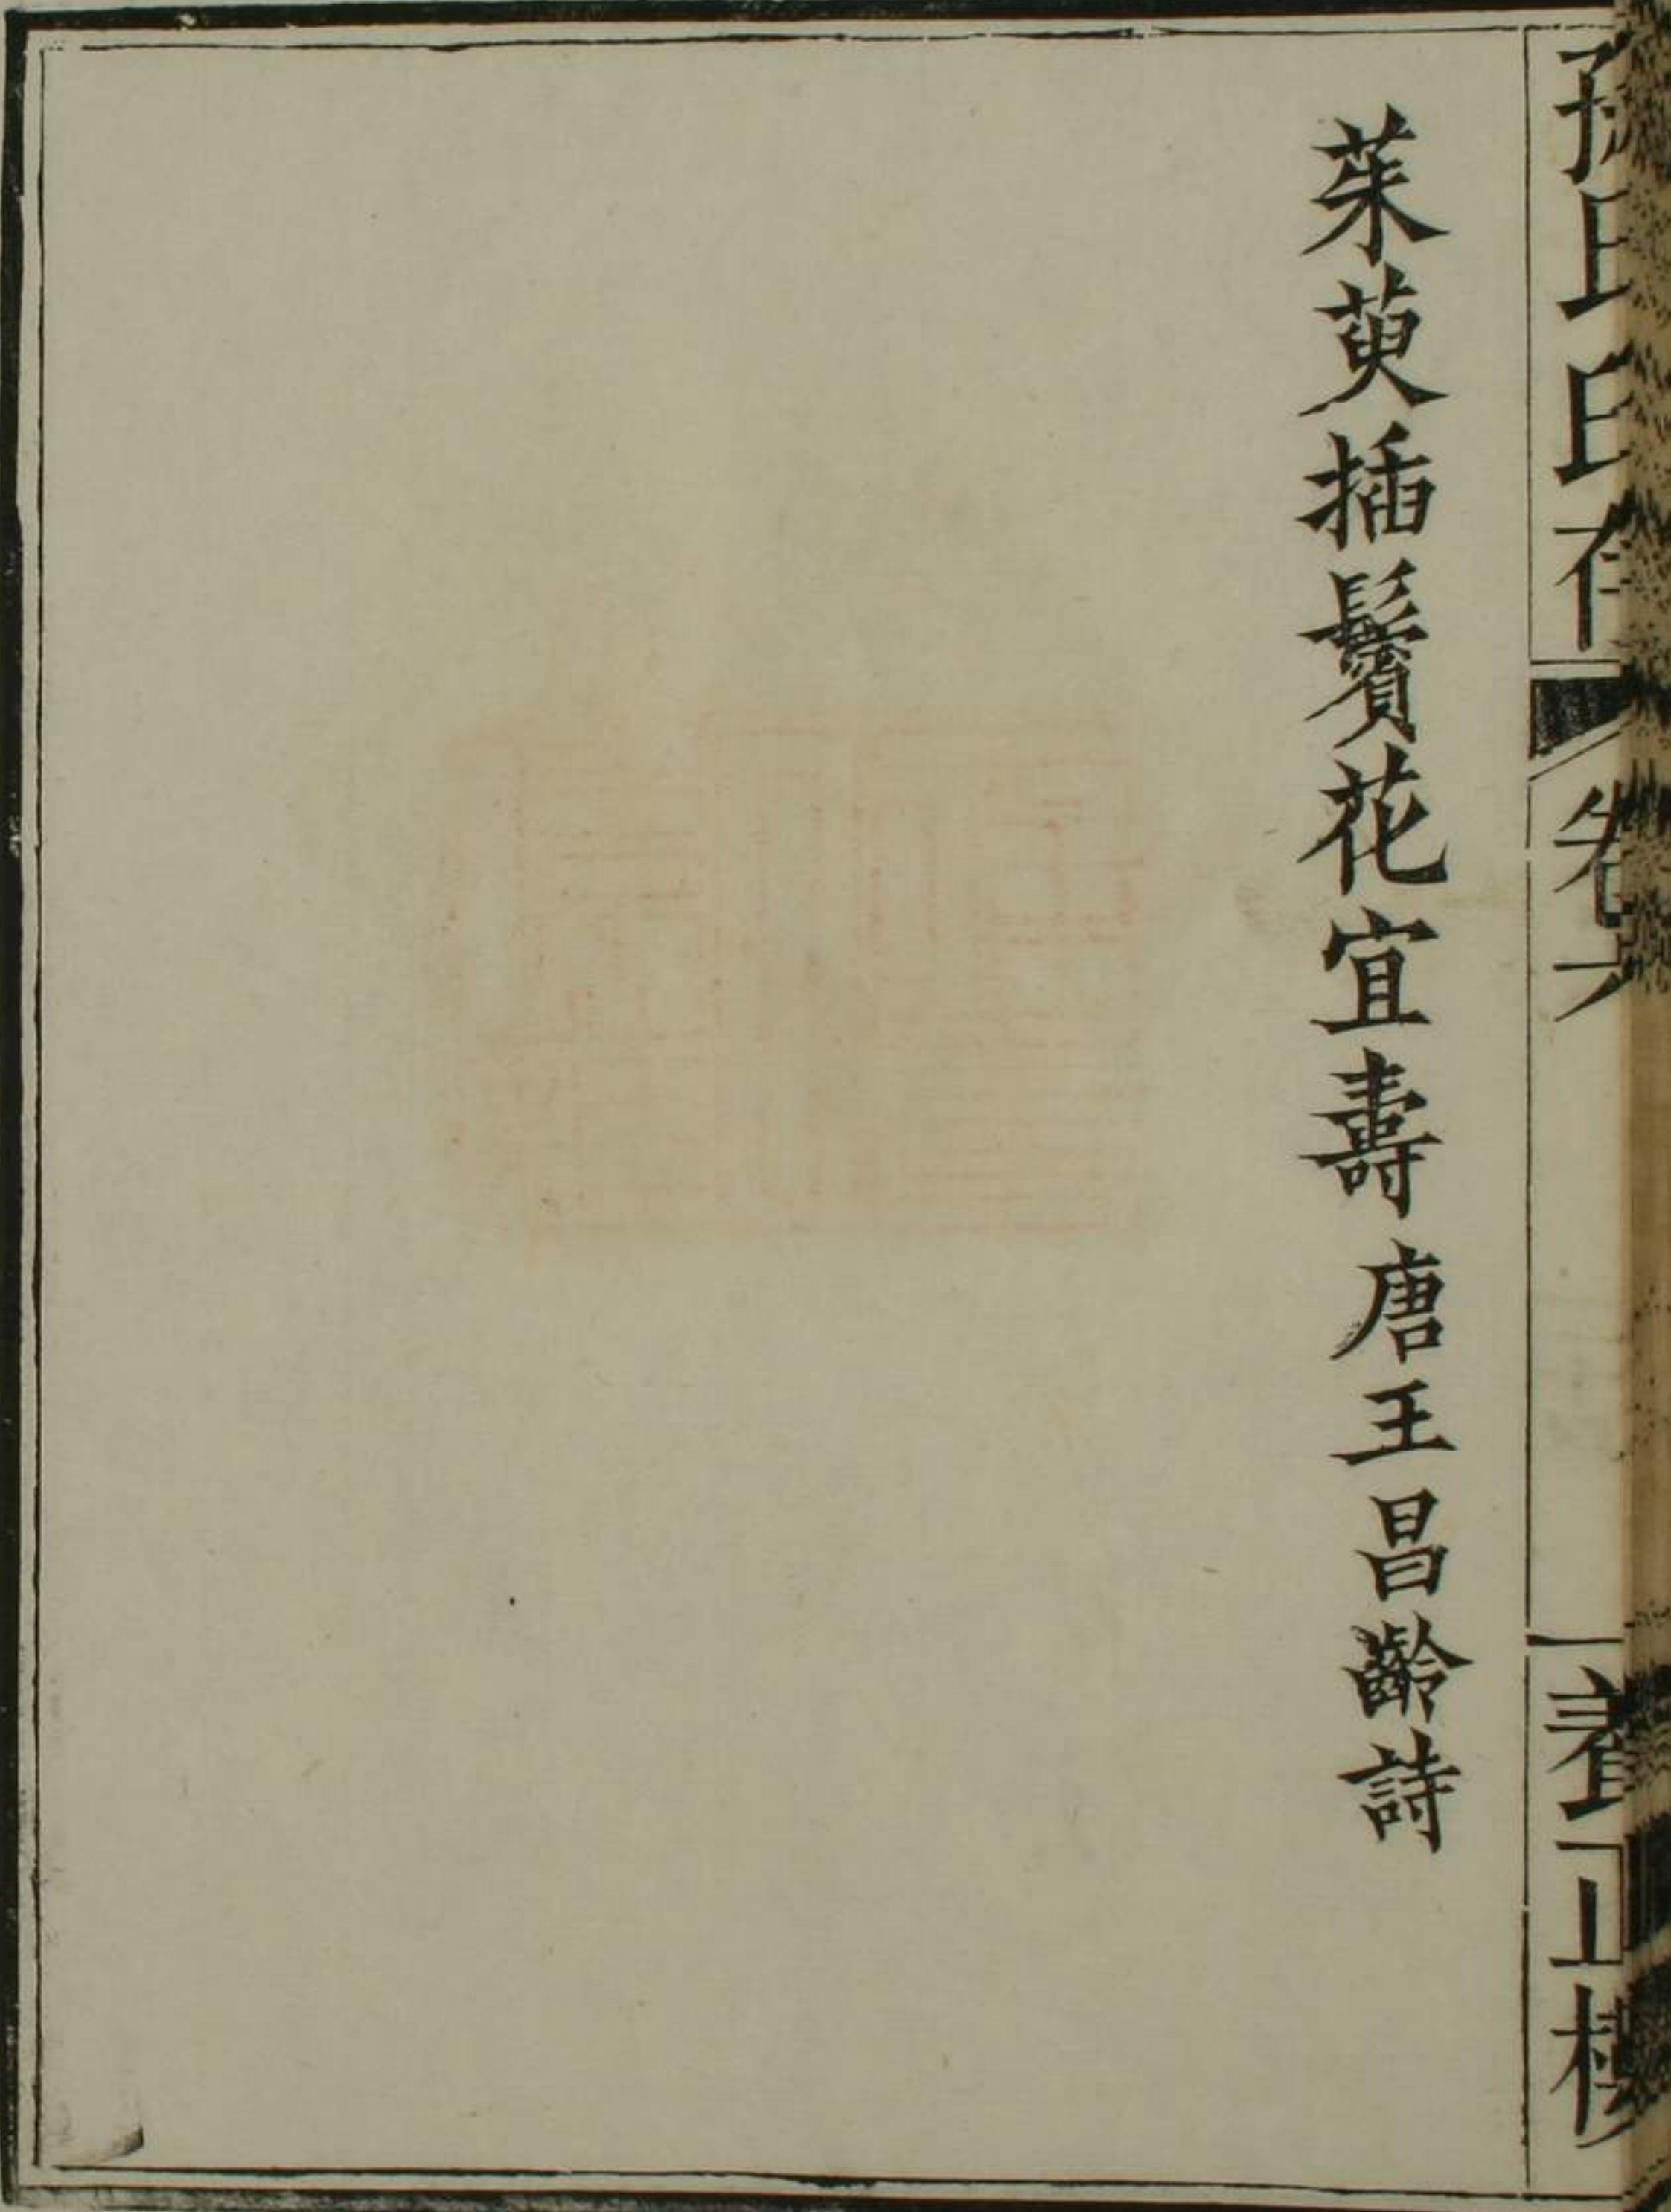 孫氏印存 卷六 養正樓
茱萸插鬢花宜壽 唐王昌齡詩